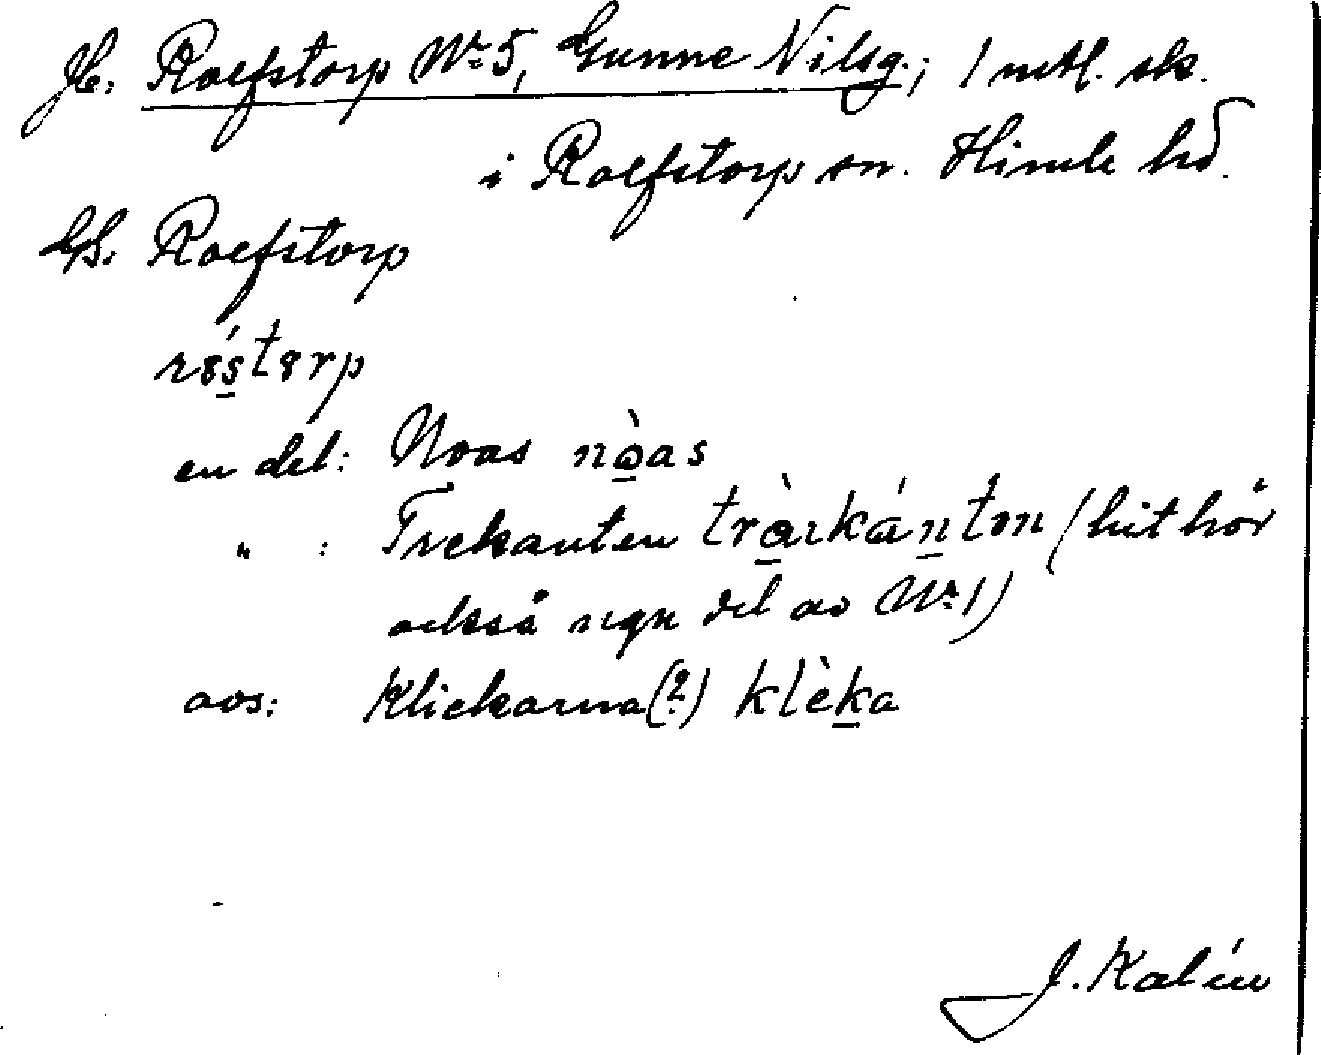 Je. Rolfstorp No 5, Gunne Nilsg.; 1 mtl. sk.
i Rolfstorp sn. Himle hd.
GS. Rolfstorp
rós̱tȣrp
en del: Noas nòas
" : Trekanten trà̱rkáṉtən (hit hör
också ngn del av No 1)
avs: Klickarna(?) klèḵa
J. Kalén